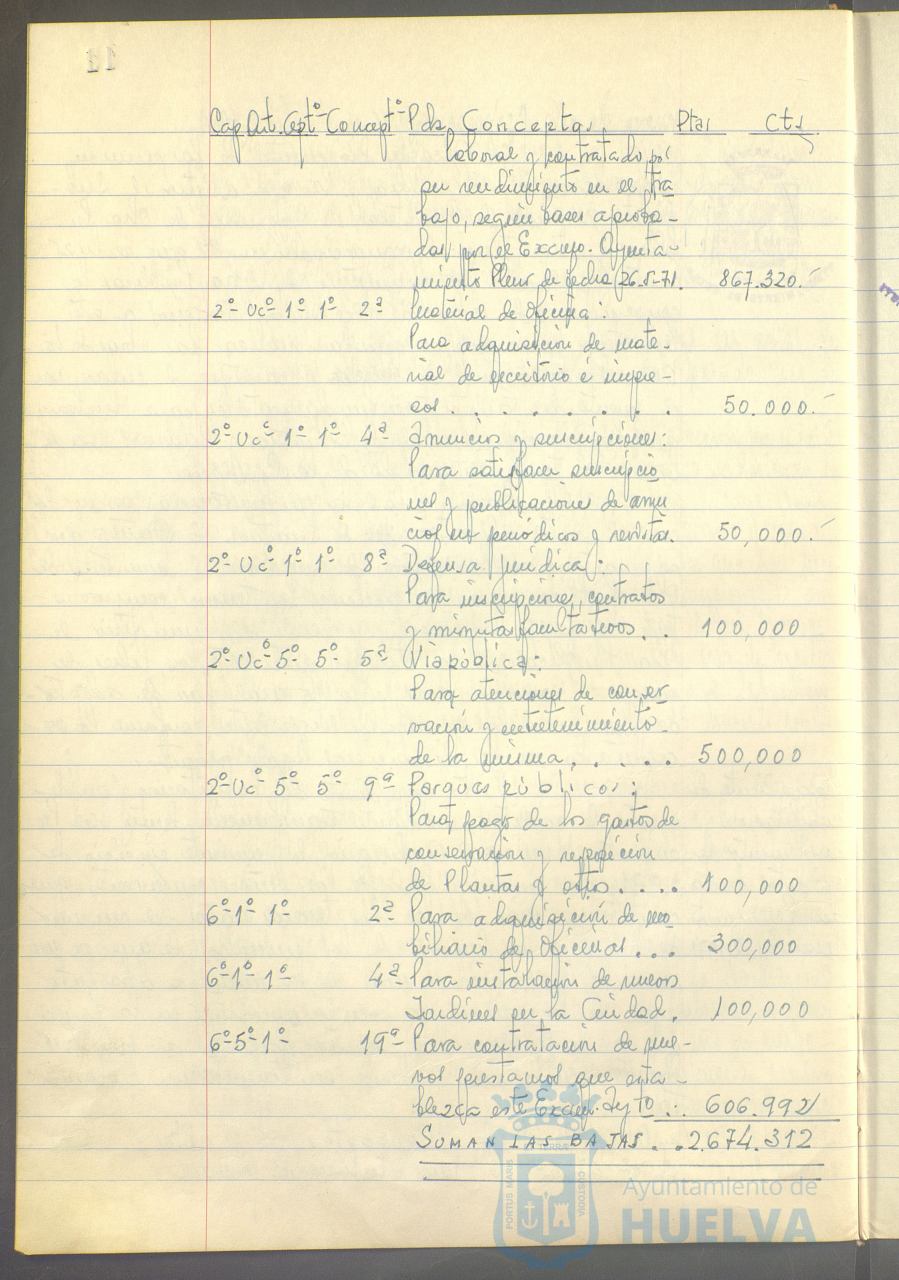 11
Cap Art. Cptº Conceptº Pda Conceptos Ptas Cts
laboral y contratado por
su rendimiento en el tra
bajo, según bases aproba-
das por el Excmo. Ayunta-
miento Pleno de fecha 26-5-71. 867.320.-
2º Ucº 1º 1º 2ª Material de Oficina:
Para adquisición de mate-
rial de escritorio é impre-
sos . . . . . . . 50.000.-
2º Ucº 1º 1º 4ª Anuncios y suscripciones:
Para satisfacer suscripcio
nes y publicaciones de anun
cios en periódicos y revistas. 50,000.-
2º Ucº 1º 1º 8ª Defensa jurídica:
Para inscripciones, contratos
y minutas facultativos . . 100,000
2º Ucº 5º 5º 5ª Via pública:
Para atenciones de conser
vación y entretenimiento
de la misma . . . . . 500,000
2º Ucº 5º 5º 9ª Parques públicos:
Para pago de los gastos de
conservación y reposición
de Plantas y otros . . . . 100,000
6º 1º 1º 2ª Para adquisición de mo
biliario de Oficinas . . . 300,000
6º 1º 1º 4ª Para instalación de nuevos
Jardines en la Ciudad. 100,000
6º 5º 1º 19ª Para contratación de nue-
vos prestamos que esta-
blezca este Excmo. Aytº . . 606.992
SUMAN LAS BAJAS . . 2.674.312
PORTUS MARIS
TERRAE
CUSTODIA
Ayuntamiento de
HUELVA